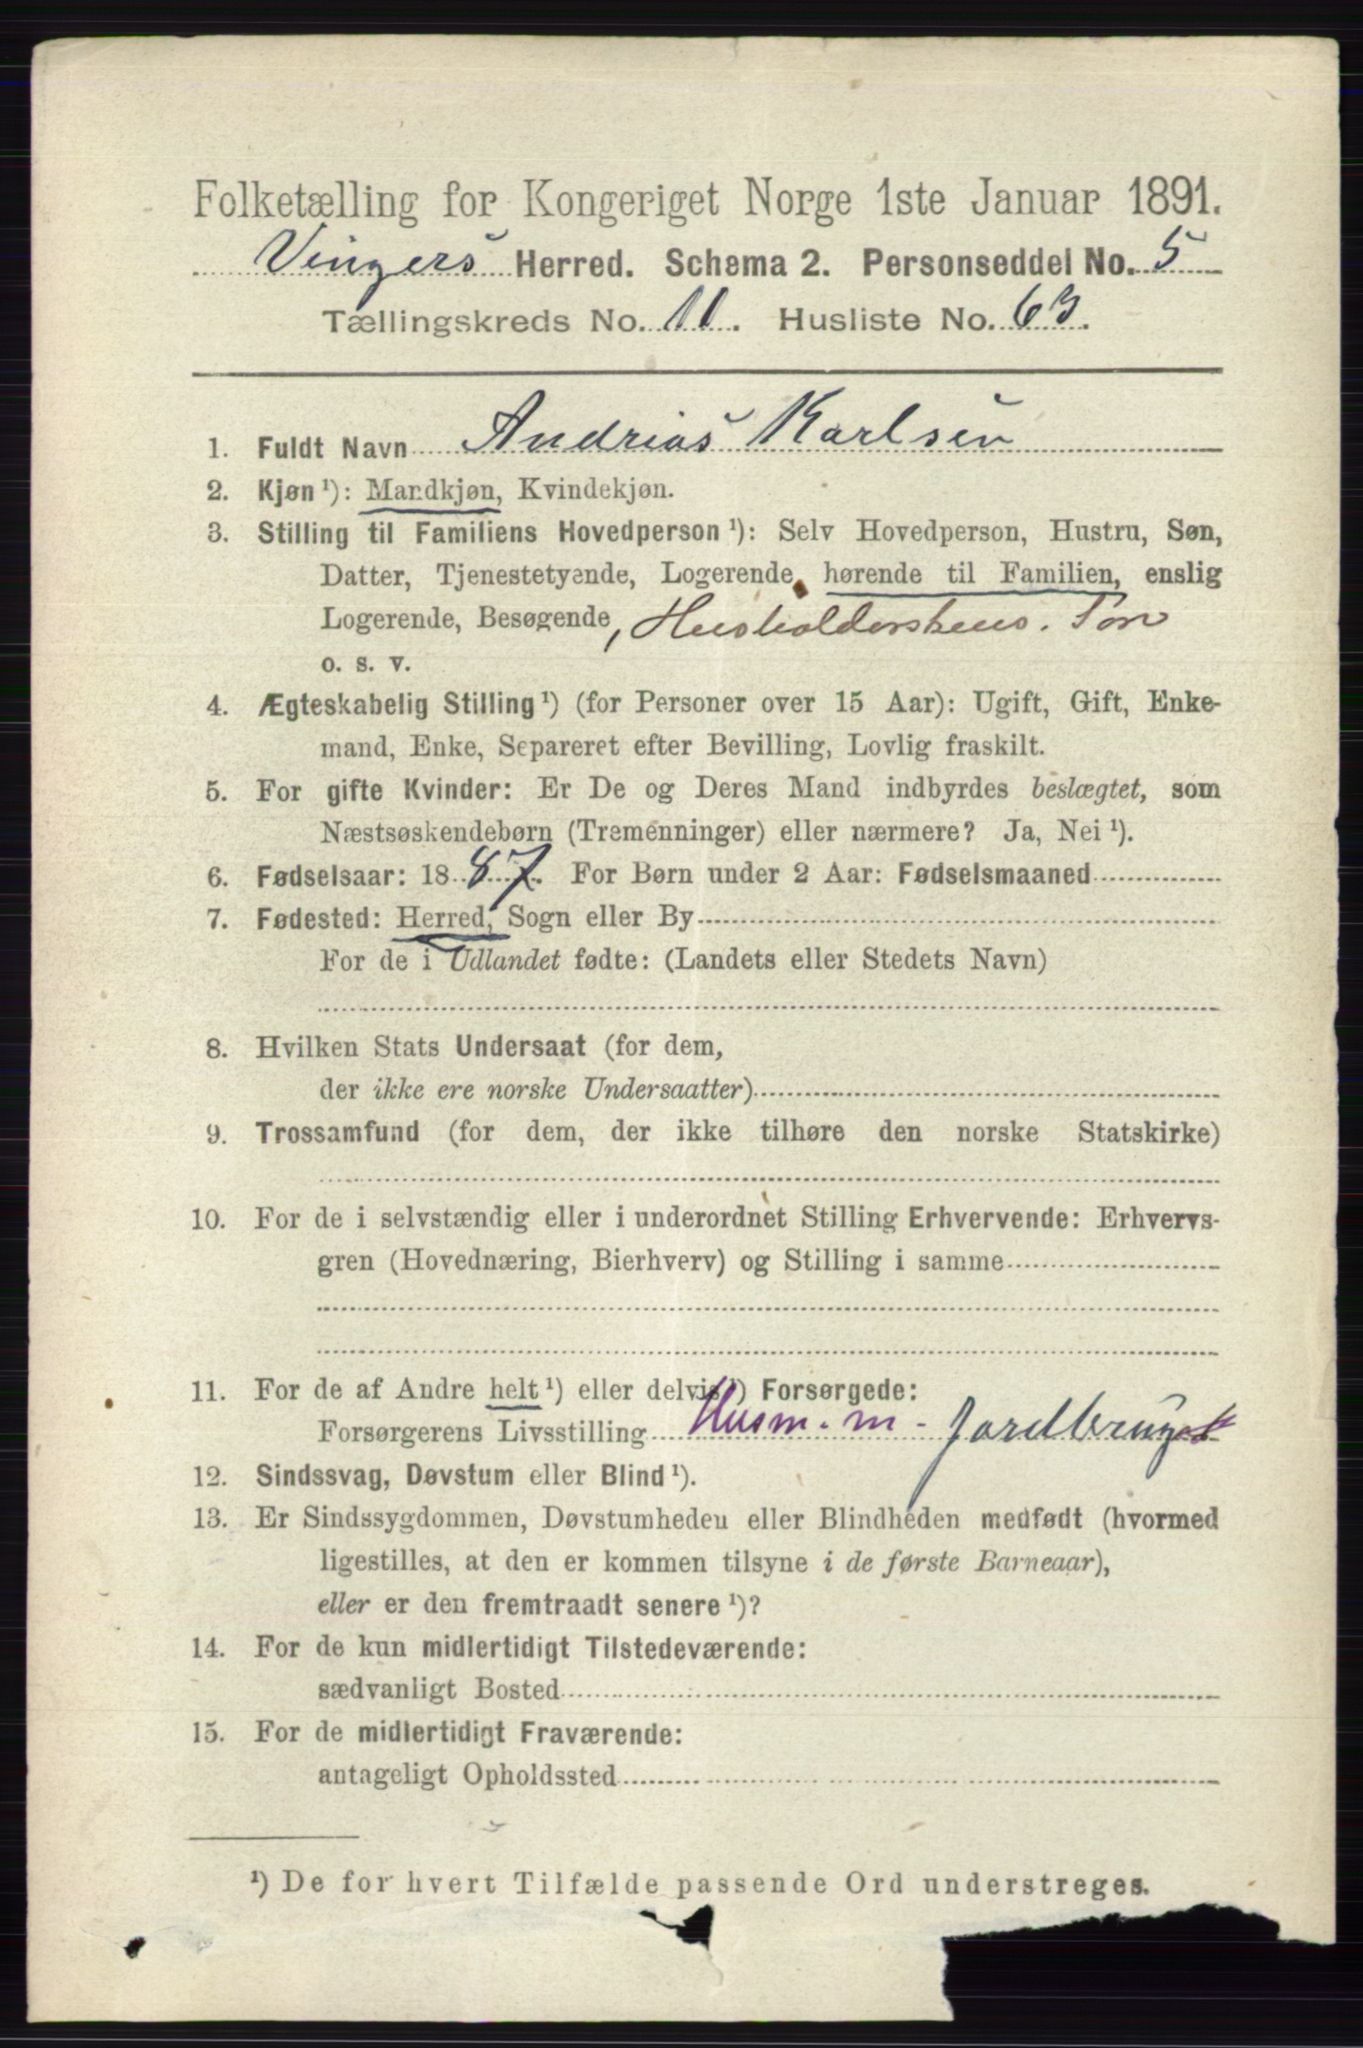 Folketælling for Kongeriget Norge 1ste Januar 1891.
Vingers Herred. Schema 2. Personseddel No. 5
Tællingskreds No. 11. Husliste No. 63.
1. Fuldt Navn Andrias Karlsen
2. Kjøn¹): Mandkjøn, Kvindekjøn.
3. Stilling til Familiens Hovedperson¹): Selv Hovedperson, Hustru, Søn,
Datter, Tjenestetyende, Logerende hørende til Familien, enslig
Logerende, Besøgende, Husholderskens. Søn
o. s. v.
4. Ægteskabelig Stilling¹) (for Personer over 15 Aar): Ugift, Gift, Enke-
mand, Enke, Separeret efter Bevilling, Lovlig fraskilt.
5. For gifte Kvinder: Er De og Deres Mand indbyrdes beslægtet, som
Næstsøskendebørn (Tremenninger) eller nærmere? Ja, Nei¹).
6. Fødselsaar: 1887. For Børn under 2 Aar: Fødselsmaaned
7. Fødested: Herred, Sogn eller By
For de i Udlandet fødte: (Landets eller Stedets Navn)
8. Hvilken Stats Undersaat (for dem,
der ikke ere norske Undersaatter)
9. Trossamfund (for dem, der ikke tilhøre den norske Statskirke)
10. For de i selvstændig eller i underordnet Stilling Erhvervende: Erhvervs-
gren (Hovednæring, Bierhverv) og Stilling i samme
11. For de af Andre helt¹) eller delvis¹) Forsørgede:
Forsørgerens Livsstilling Husm. m- Jordbrug
12. Sindssvag, Døvstum eller Blind¹).
13. Er Sindssygdommen, Døvstumheden eller Blindheden medfødt (hvormed
ligestilles, at den er kommen tilsyne i de første Barneaar),
eller er den fremtraadt senere¹)?
14. For de kun midlertidigt Tilstedeværende:
sædvanligt Bosted
15. For de midlertidigt Fraværende:
antageligt Opholdssted
¹) De for hvert Tilfælde passende Ord understreges.